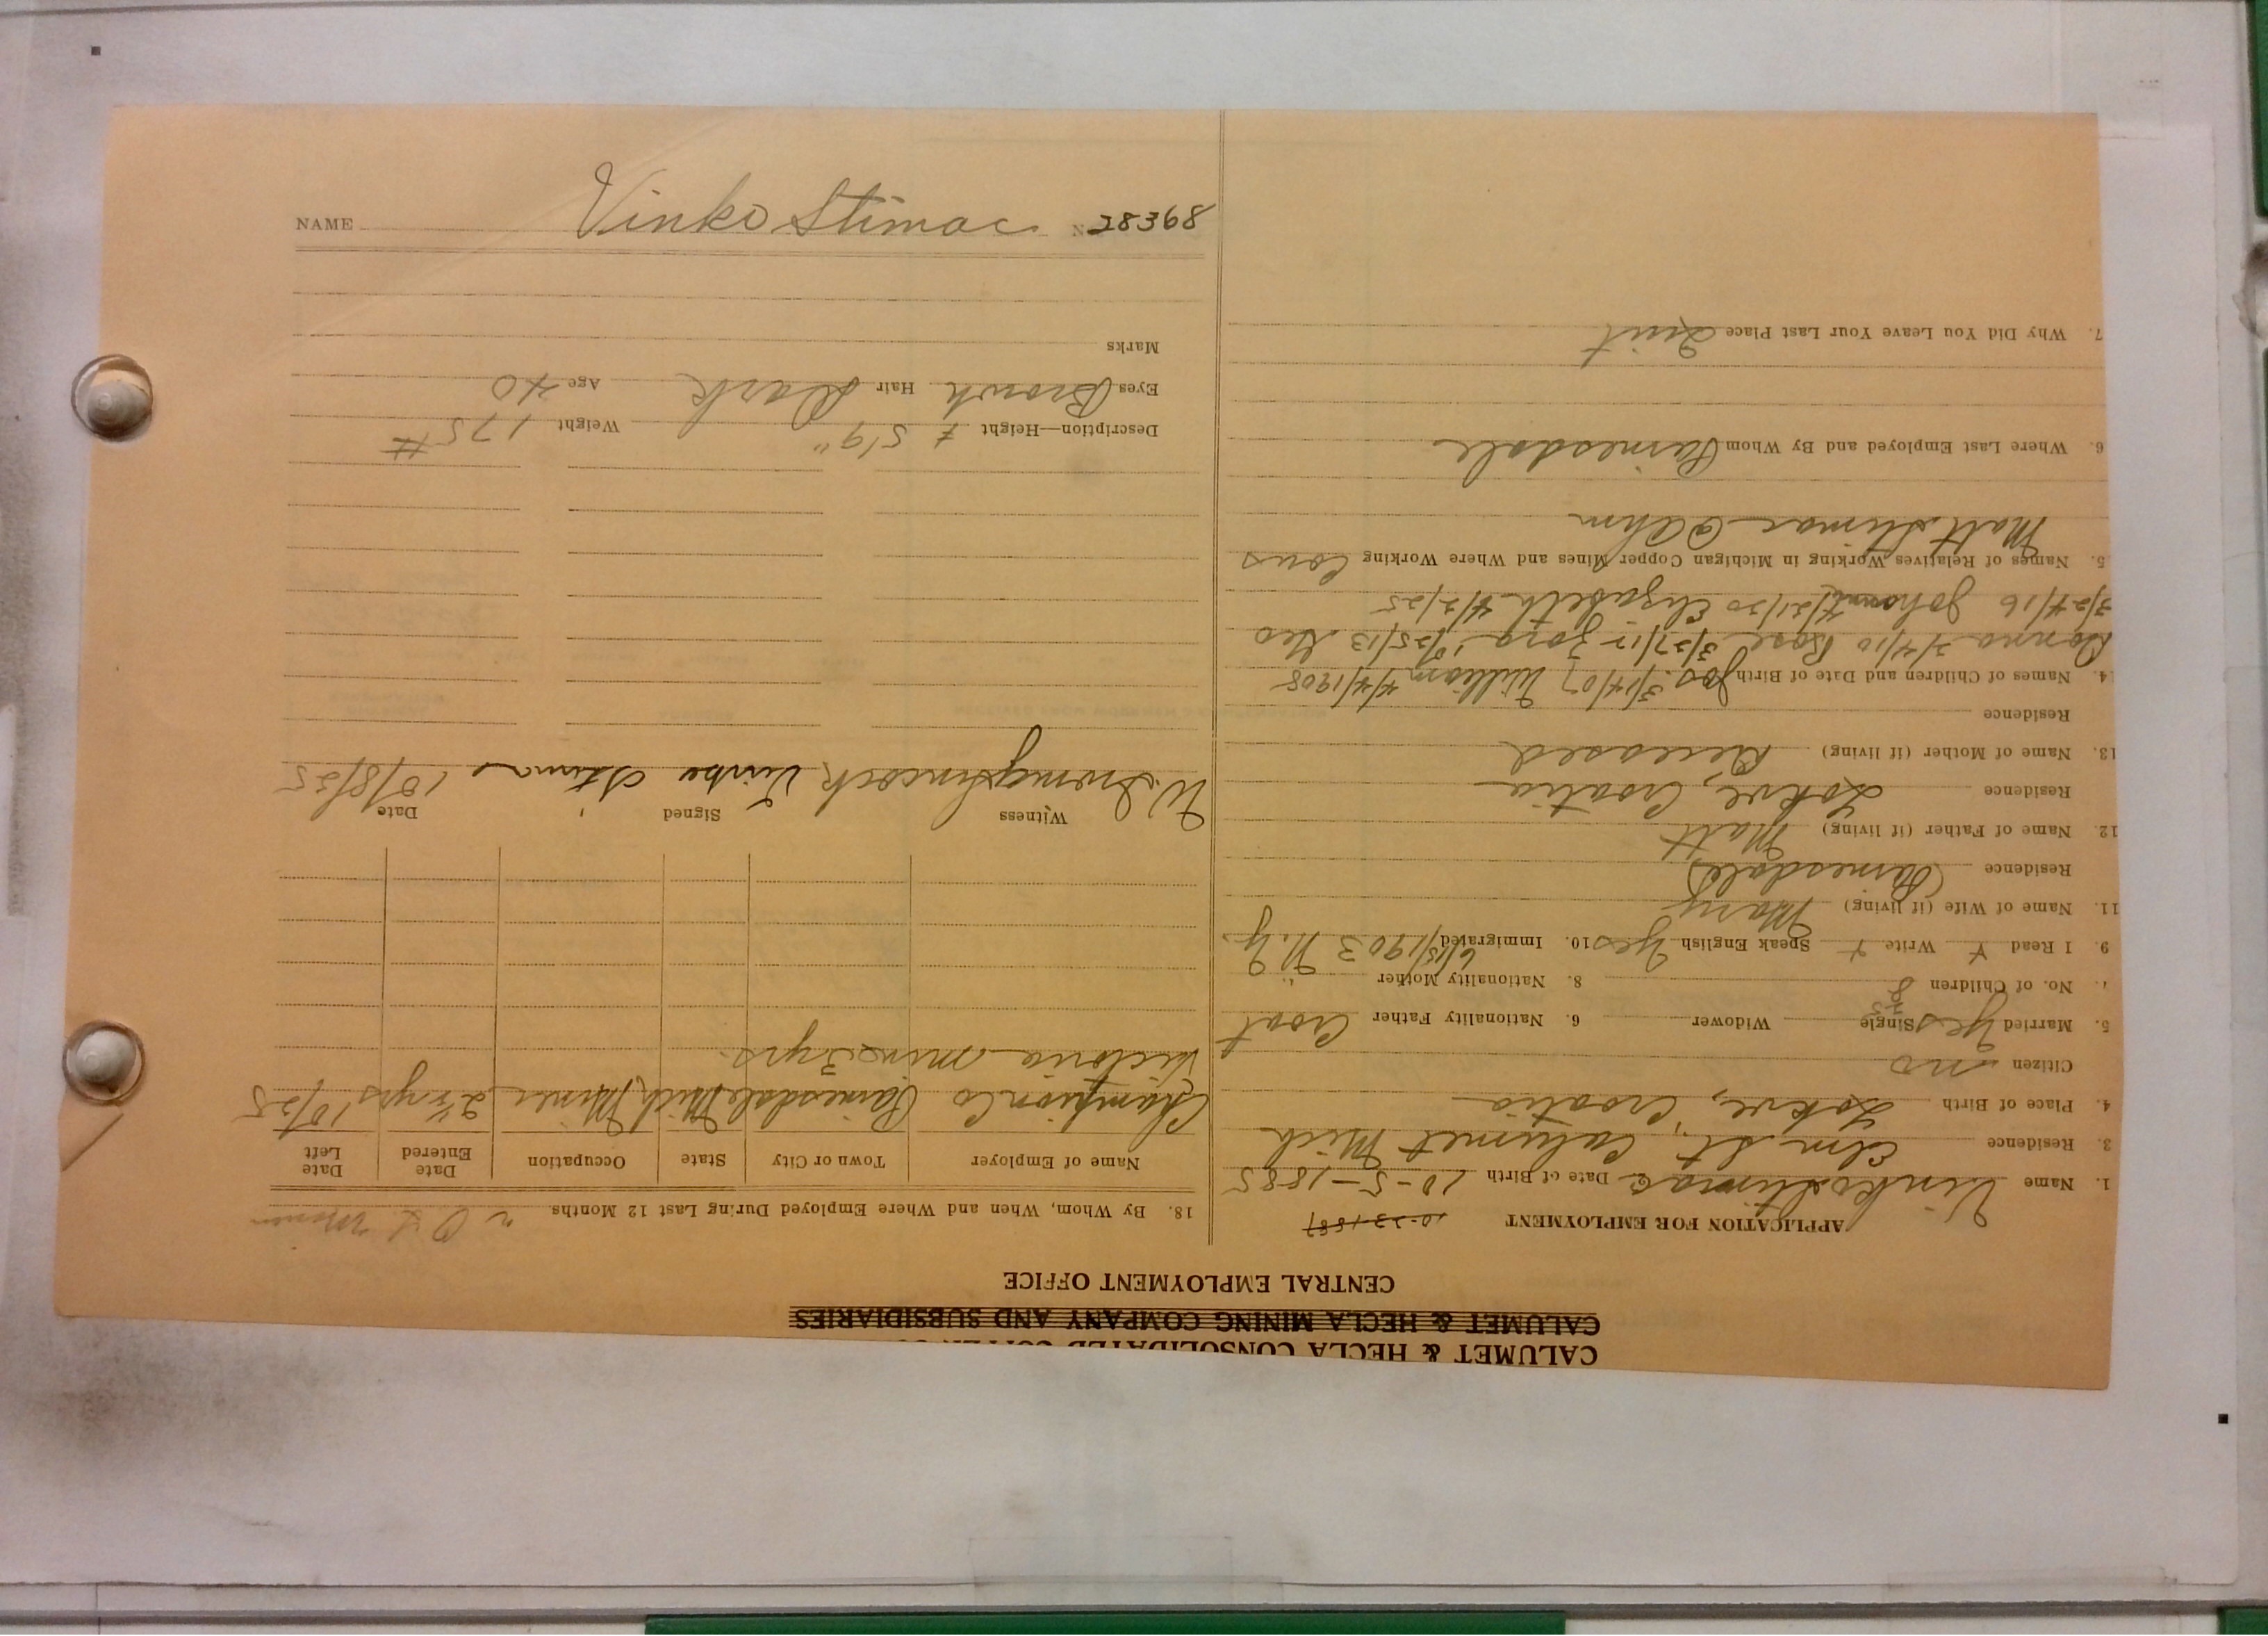 CALUMET & HECLA CONSOLIDATED COPPER
CALUMET & HECLA MINING COMPANY AND SUBSIDIARIES
CENTRAL EMPLOYMENT OFFICE
APPLICATION FOR EMPLOYMENT 10-23-1887
1. Name Vinko Stimac Date of Birth 10-5-1885
3. Residence Elm St., Calumet Mich
4. Place of Birth Lokve, Croatia
Citizen no
5. Married Yes Single Widower 6. Nationality Father Croat
7. No. of Children 8 8. Nationality Mother "
9. I Read Y Write Y Speak English Yes 10. Immigrated 6/15/1903 N.Y.
11. Name of Wife (if living) Mary
Residence Painesdale
12. Name of Father (if living) Matt
Residence Lokve, Croatia
13. Name of Mother (if living) Deceased
Residence
14. Names of Children and Date of Birth Jos. 3/14/07 William 4/4/1908
Anna 2/4/10 Rose 3/27/12 Zora 10/25/13 Geo
3/24/16 Johan 4/21/20 Elizabeth 4/2/25
15. Names of Relatives Working in Michigan Copper Mines and Where Working Cous
Matt Stimac @ Ahm
16. Where Last Employed and By Whom Painesdale
17. Why Did You Leave Your Last Place Quit
18. By Whom, When and Where Employed During Last 12 Months
Name of Employer Town or City State Occupation Date Entered Date Left
Champion Co Painesdale Mich Miner 2½ yrs 10/25
Victoria Mine 3 yrs.
Witness Signed Date
Vinko Stimac 10/8/25
Description—Height 5'9" Weight 175#
Eyes Brown Hair Dark Age 40
Marks
NAME Vinko Stimac No 28368